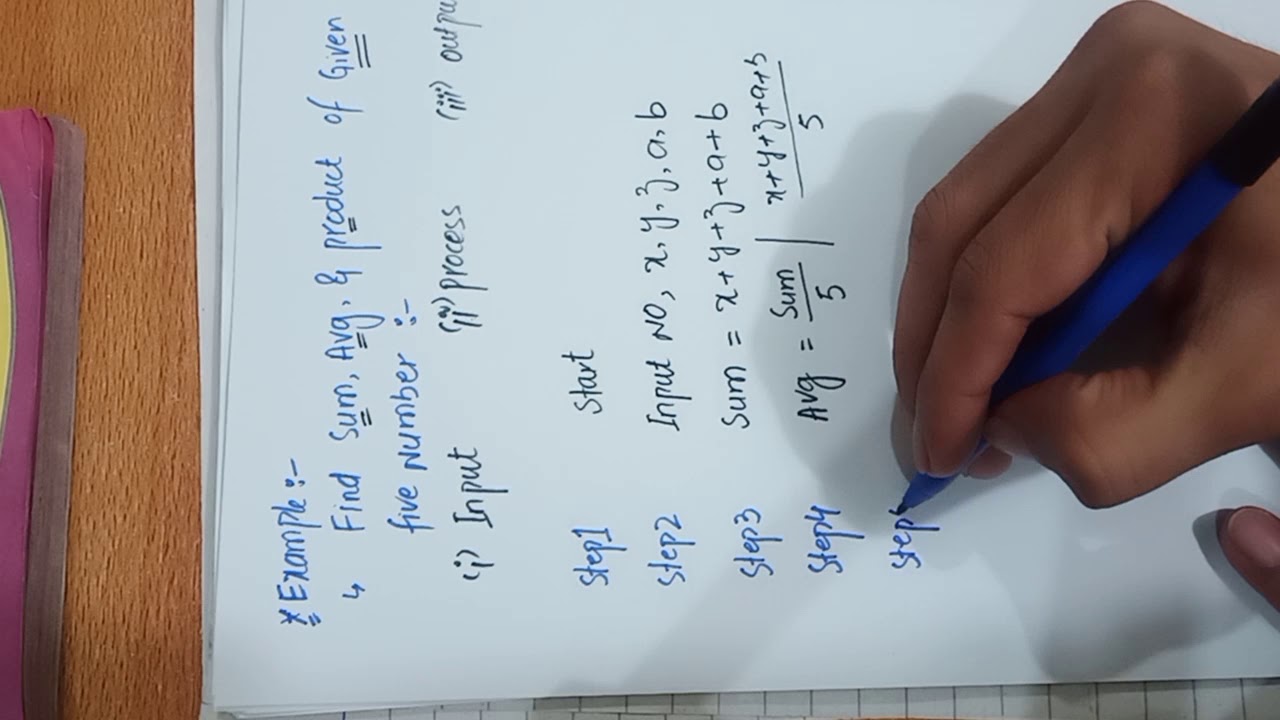 * Example :-
↳ Find Sum, Avg, & product of Given
five Number :-
(i) Input (ii) process (iii) outpu
Step1 Start
Step2 Input NO, x, y, z, a, b
Step3 Sum = x+y+z+a+b
Step4 Avg = Sum/5 | x+y+z+a+b/5
Step